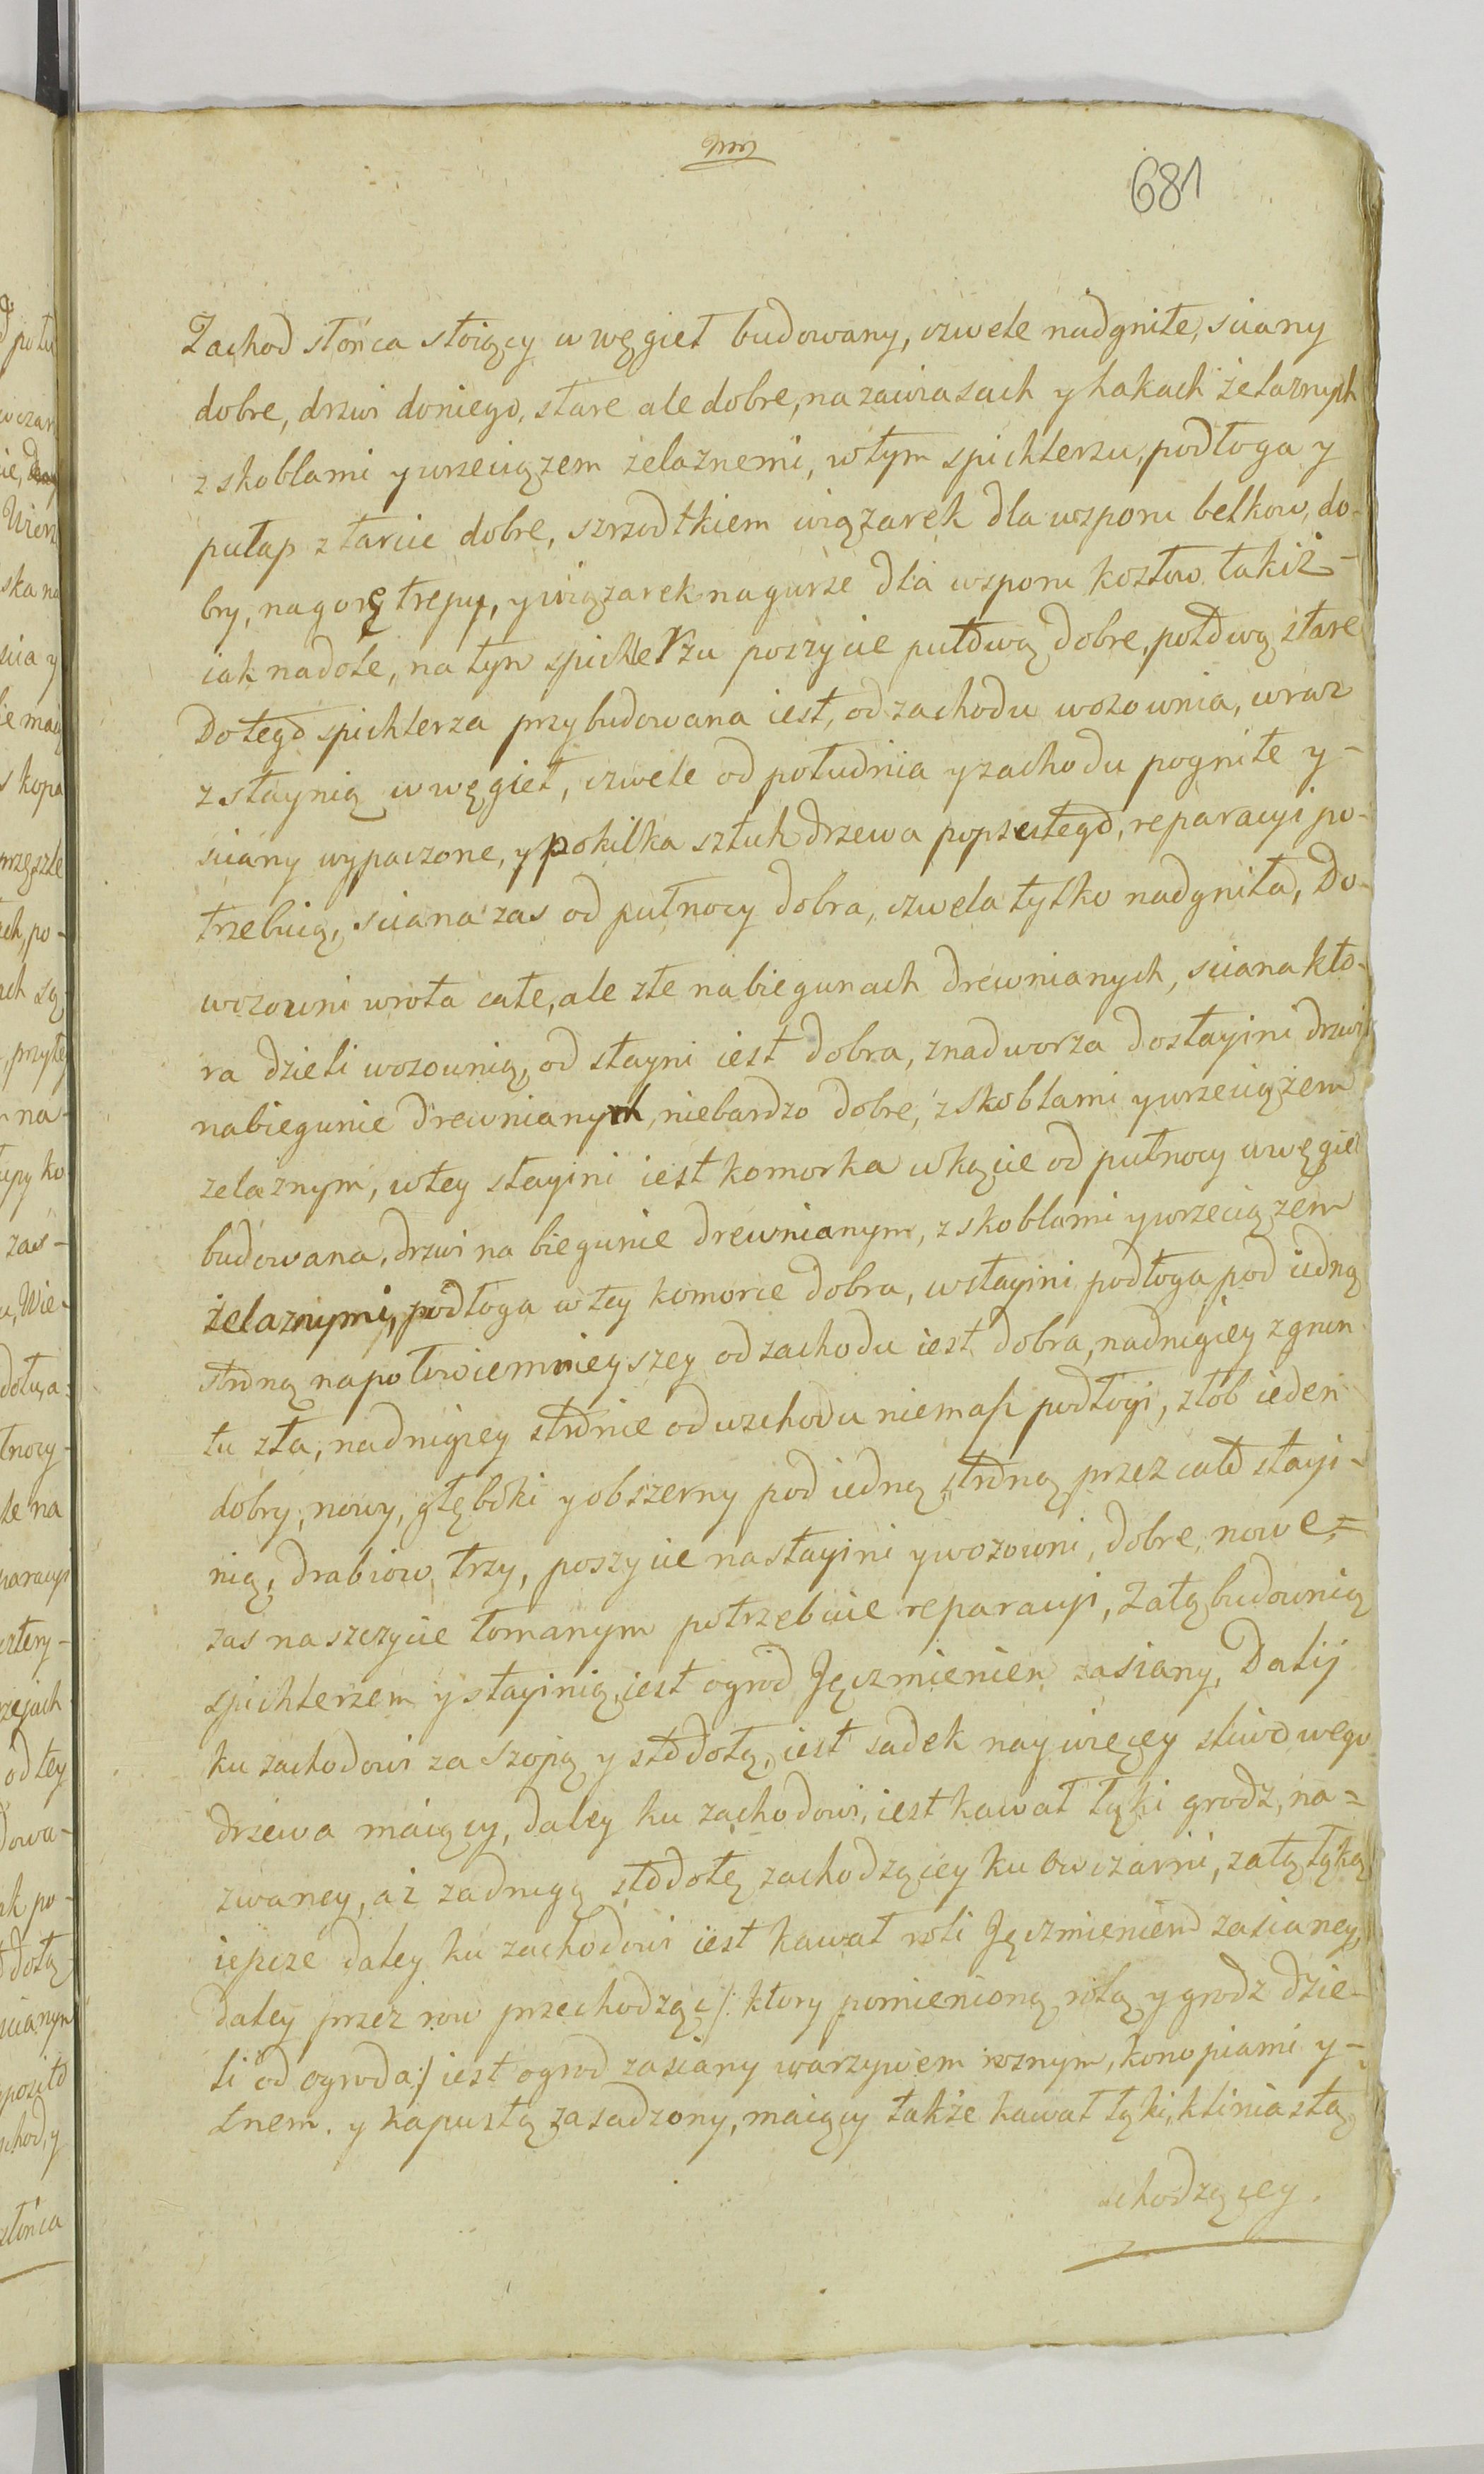 681
Zachod słońca stoiący w węgieł budowany, czwele nadgniłe, sciany
dobre, drzwi doniego, stare ale dobre, na zawiasach y hakach żelaznych
z skoblami y wrzeciązem żelaznemi, w tym spichlerzu, podłoga y
pułap z tarcic dobre, szrzodkiem wiązarek dla wsporu belkow, do-
bry, na gorę trepy, y wiązarek na gurze dla wsporu kozłow takiż-
iak nadole, na tym spichlerzu poszycie pułdwą dobre, połdwą stare
Do tego spichlerza przybudowana iest, od zachodu wozownia, wraz
z staynią w węgieł, czwele od południa y zachodu pogniłe y-
sciany wypaczone, y po kilka sztuk drzewa popsutego, reparacyi po-
trzebuią, sciana zas od pułnocy dobra, czwela tylko nadgniła, Do-
wozowni wrota całe, ale złe nabiegunach drewnianych, sciana kto-
ra dzieli wozownią, od stayni iest dobra, znadworza do stayini drzwi
nabiegunie drewnianym, niebardzo dobre, z skoblami y wrzeciązem
zelaznym, w tey stayini iest komorka w kącie od pułnocy w węgieł
budowana, drzwi na biegunie drewnianym, z skoblami y wrzeciązem
żelaznymi, podłoga w tey komorce dobra, w stayini podłoga pod iedną
stroną na połowie mnieyszey od zachodu iest dobra, nadrugiey z grun-
tu zła, nadrugiey stronie od wschodu niemasz podłogi, złob ieden
dobry, nowy, głęboki y obszerny pod iedną stroną przez całą stayi-
nią, drabiow trzy, poszycie na stayini y wozowni, dobre, nowe,=
zas na szczycie łomanym potrzebuie reparacyi, Zatą budownią
spichlerzem y stayinią, iest ogrod Jęczmieniem zasiany, Daliy
ku zachodowi za szopą y stodołą, iest sadek naywięcey sliwowego
drzewa maiący, daley ku zachodowi, iest kawał łąki grodz, na=
zwaney, aż zadrugą stodołę zachodzącey ku owczarni, zatą łąką
ieszcze daley ku zachodowi iest kawał roli Jęczmieniem zasianey,
daley przez row przechodząc /: ktory pomienioną rolą y grodz dzie-
li od ogroda :/ iest ogrod zasiany warzywem roznym, konopiami y-
lnem. y kapustą zasadzony, maiący także kawał łąki, kliniastą
schodzącey.